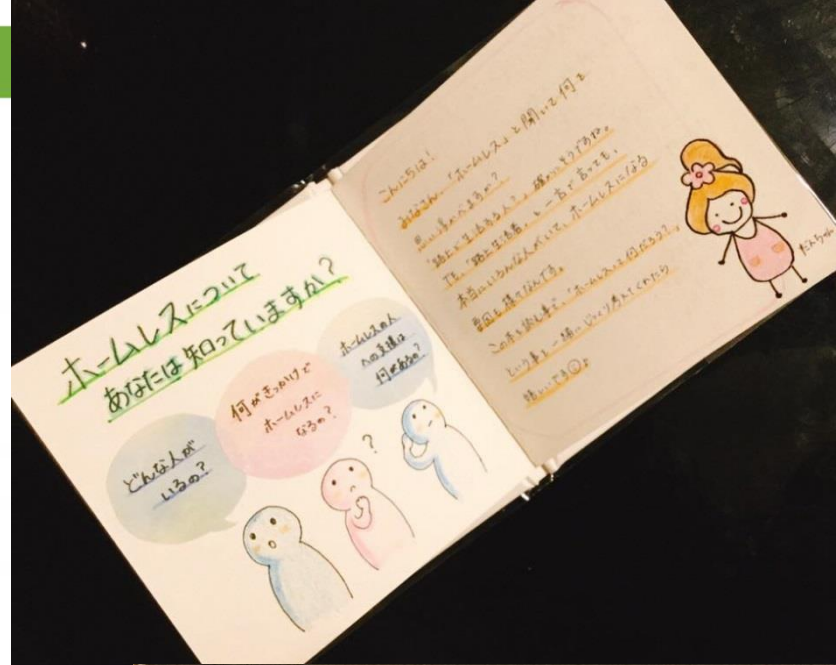 ホームレスについて
あなたは知っていますか？
どんな人が
いるの？
何がきっかけで
ホームレスに
なるの？
ホームレスの人
への支援は
何があるの？
?
こんにちは！
みなさん、「ホームレス」と聞いて何を
思い浮かべますか？
「路上で生活する人？」確かにそうですね。
でも、「路上生活者」と一言で言っても、
本当にいろんな人がいて、ホームレスになる
要因も様々なんです。
この本を読む事で、「ホームレスって何だろう？」
という事を一緒にじっくり考えてくれたら
嬉しいです